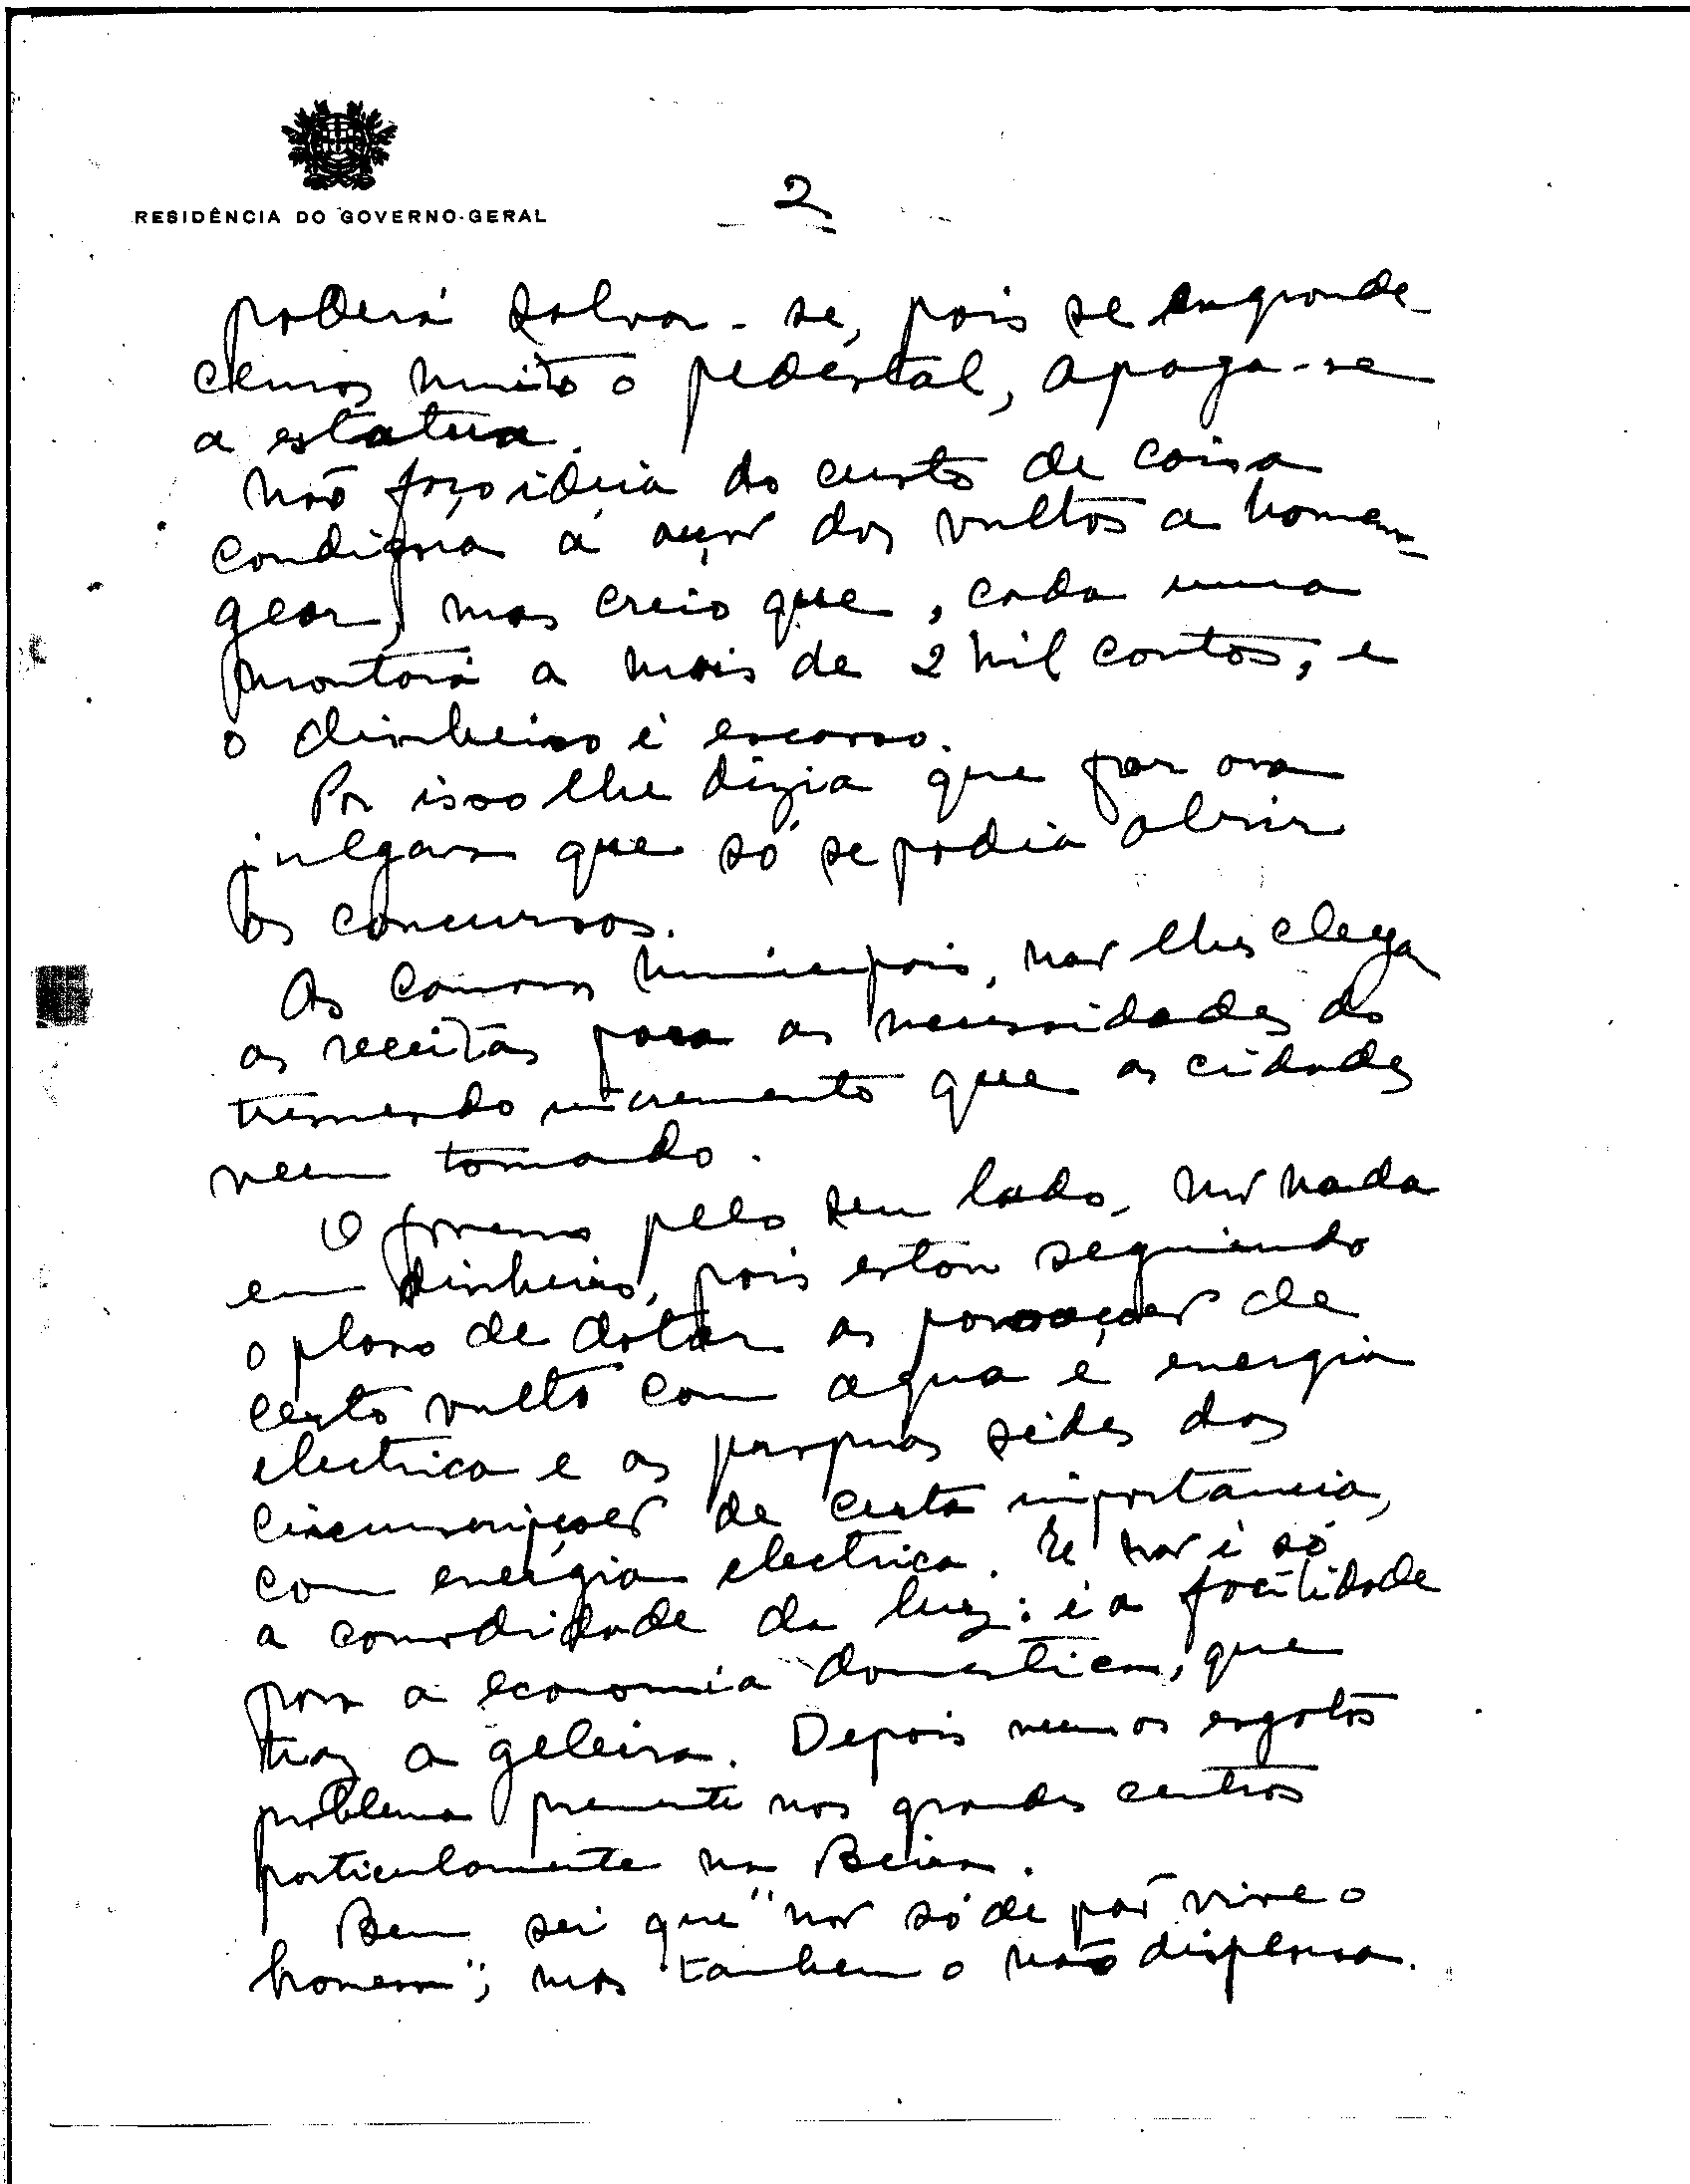 RESIDÊNCIA DO GOVERNO-GERAL
2
poderá salvar-se, pois se engrande
cemos muito o pedestal, apaga-se
a estatua.
Não faço ideia do custo de coisa
condigna á acção dos vultos a homena
gear, mas creio que, cada uma
montará a mais de 2 mil contos, e
o dinheiro é escasso.
Por isso lhe dizia que por ora
julgava que só se podia abrir
os concursos.
As Camaras Municipais, não lhes chega
as receitas para as necessidades do
tremendo incremento que as cidades
veem tomando.
O Governo pelo seu lado, não nada
em dinheiro, pois estou seguindo
o plano de dotar as povoações de
certo vulto com agua e energia
electrica e as proprias sédes das
circunscrições de certa importancia,
com energia electrica. E não é só
a comodidade da luz: é a facilidade
para a economia domestica, que
traz a geleira. Depois veem os esgotos
problema premente nos grandes centros
particularmente na Beira.
Bem sei que "não só de pão vive o
homem"; mas tambem o não dispensa.